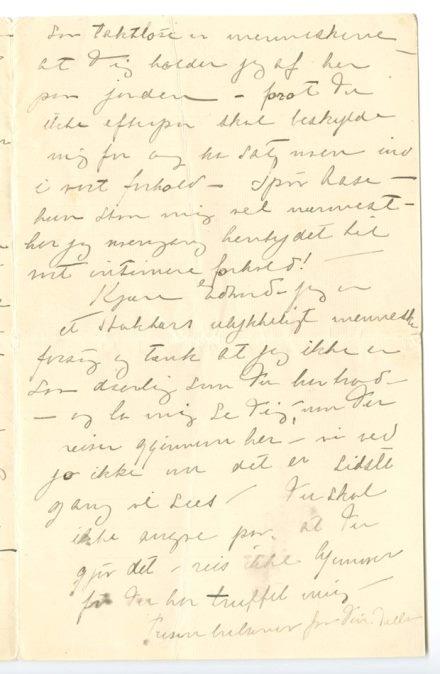 Saa taktløse er menneskene –
at Dig holder jeg af her
paa jorden – forat Du
ikke efterpaa skal beskylde
mig for og ha sat noen ind
i vort forhold – Spør Aase –
hun som mig vel nærmest –
har jeg nogengang hentydet til
vort intimere forhold! –
Kjære Edvard – jeg er
et stakkars ulykkeligt menneske
forsøg og tænk at jeg ikke er
saa daarlig som Du har trod –
– og la mig se Dig, naar Du
reiser gjennem her – vi ved
jo ikke om det er sidste
gang vi sees – Du skal
ikke angre paa, at Du
gjør det – reis ikke hjemover
før Du har truffet mig –
hilsener fra Din Tulla